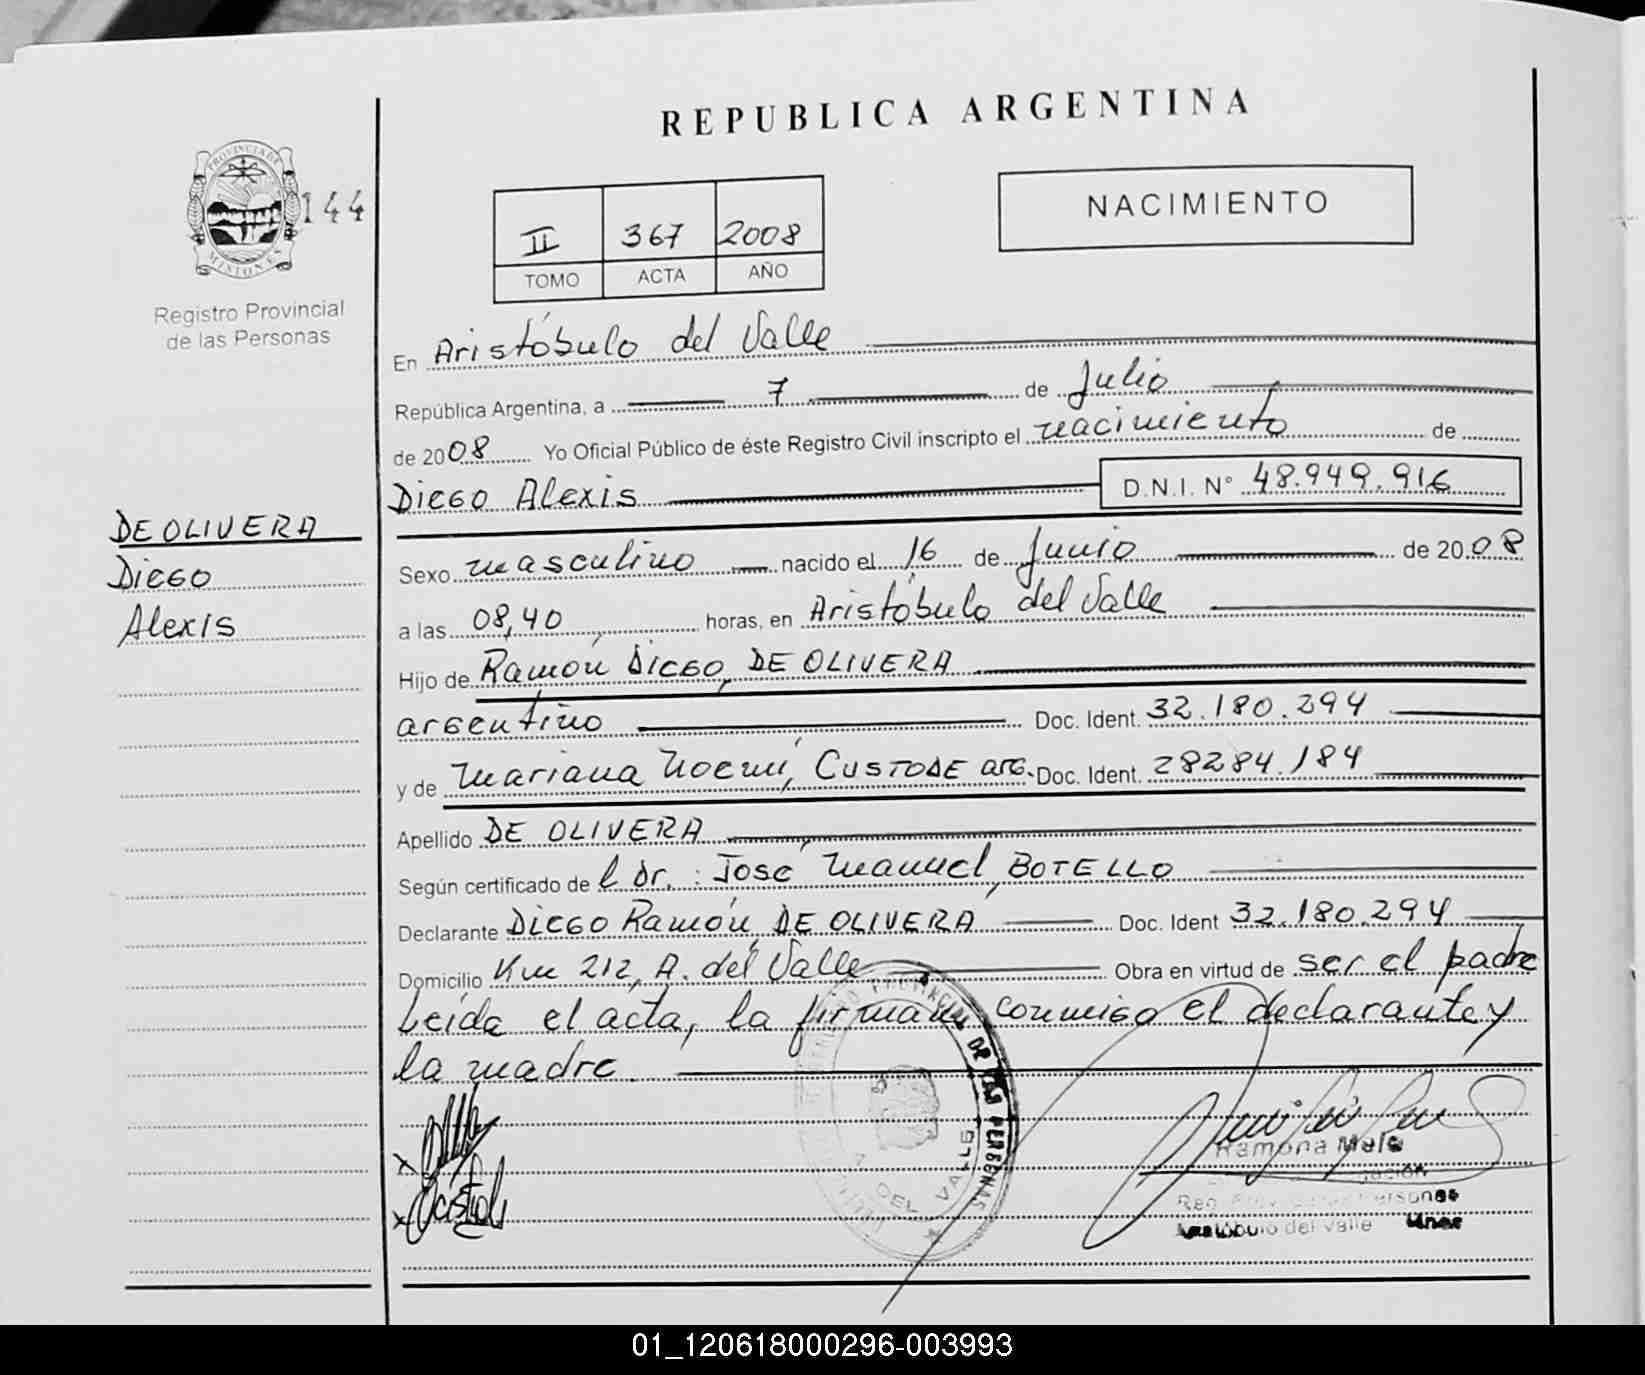 REPUBLICA ARGENTINA
PROVINCIA DE
MISIONES
144
Registro Provincial
de las Personas
II 367 2008
TOMO ACTA AÑO
NACIMIENTO
En Aristóbulo del Valle
República Argentina, a 7 de Julio
de 2008 Yo Oficial Público de éste Registro Civil inscripto el nacimiento de
Diego Alexis D.N.I. N° 48.949.916
DE OLIVERA
Diego
Alexis
Sexo masculino nacido el 16 de Junio de 2008
a las 08,40 horas, en Aristóbulo del Valle
Hijo de Ramón Diego, DE OLIVERA
argentino Doc. Ident. 32.180.294
y de Mariana Noemí, CUSTODE arg. Doc. Ident. 28284.184
Apellido DE OLIVERA
Según certificado de l Dr. : José Manuel, BOTELLO
Declarante Diego Ramón, DE OLIVERA Doc. Ident 32.180.294
Domicilio Km 212, A. del Valle Obra en virtud de ser el padre
Leída el acta, la firman conmigo el declarante y
la madre.
DE LAS PERSONAS
DEL VALLE
Ramona Melo
del Valle
01_120618000296-003993